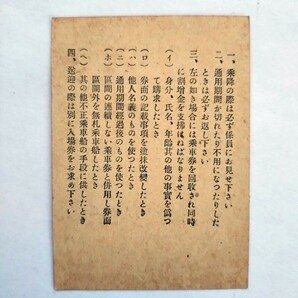 一、乗降の際は必ず係員にお見せ下さい
二、通用期間が切れたり不用になつたりした
ときは必ずお返し下さい
三、左の如き場合には乗車券を回収され同時
に割増金を支払はねばなりません
(イ) 身分、氏名、年齢其の他の事実を偽つ
て購求したとき
(ロ) 券面の記載事項を塗抹改変したとき
(ハ) 他人名義のものを使つたとき
(ニ) 通用期間経過後のものを使つたとき
(ホ) 区間の連続しない乗車券と併用し券面
区間外を無札乗車船したとき
(ヘ) 其の他不正乗車船の手段に供したとき
四、送迎の際は別に入場券をお求め下さい